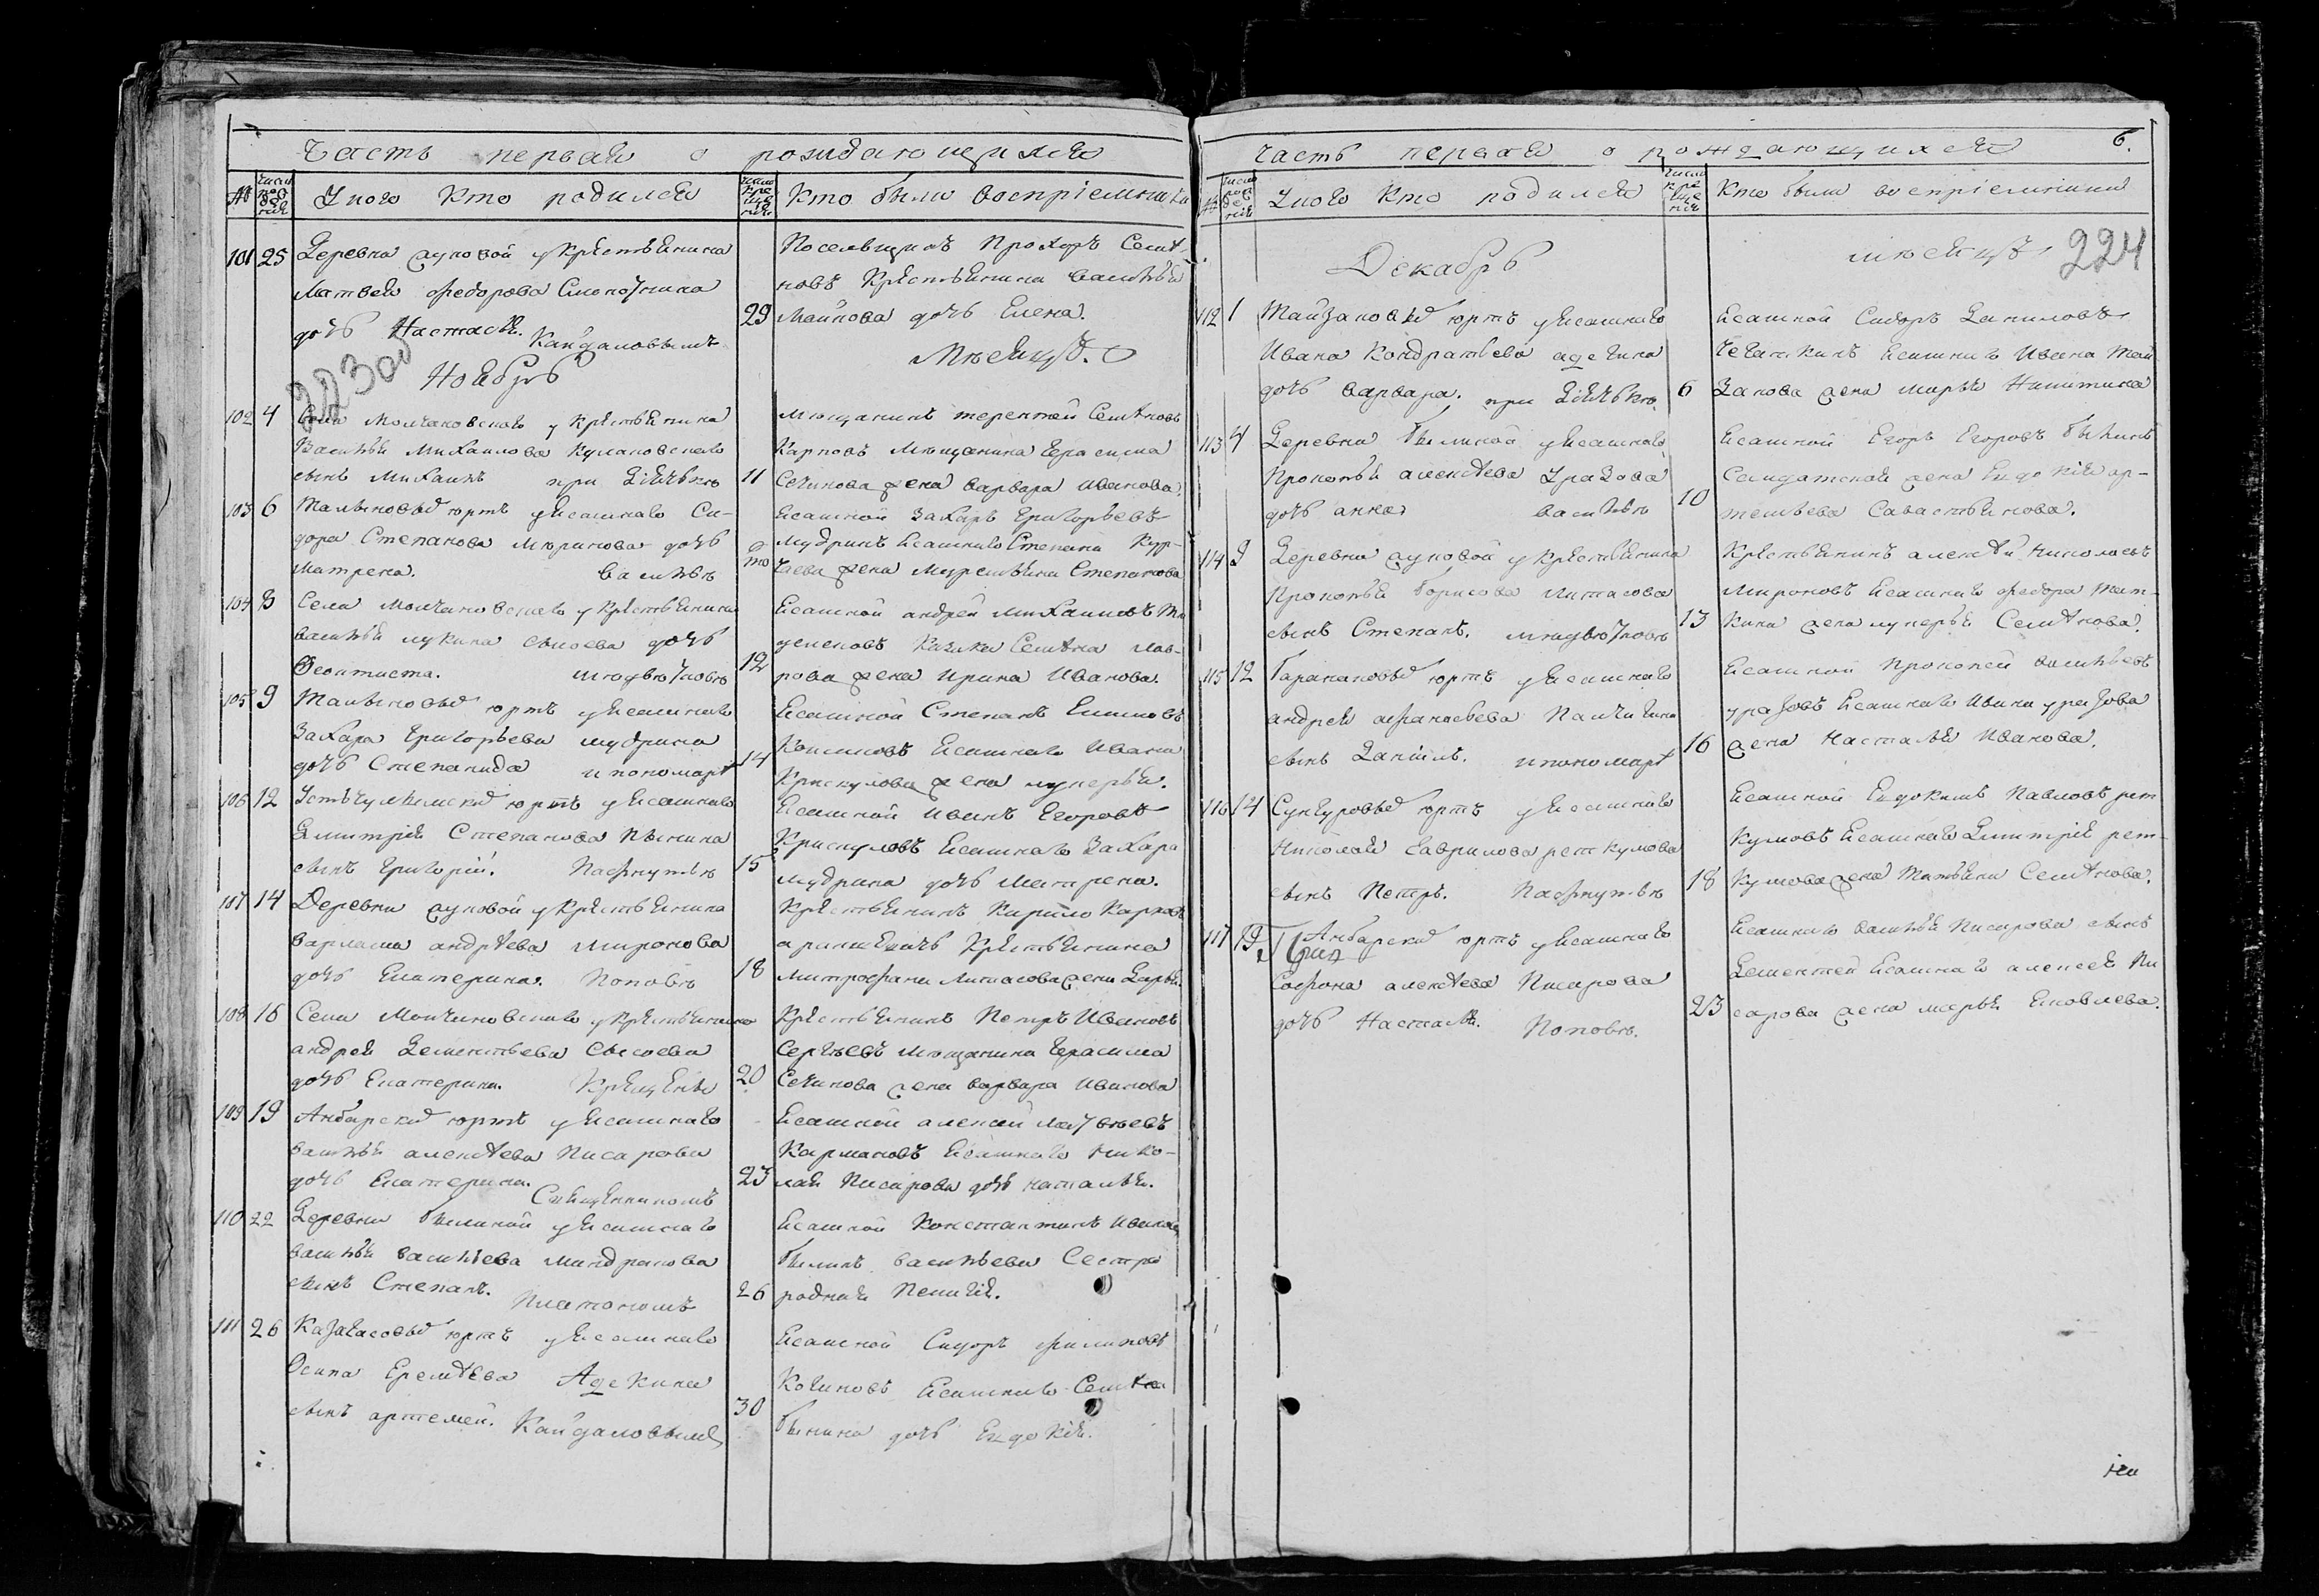 Часть первая о рождающихся
№ число рождения У кого кто родился число крещения Кто были восприемники
101 25 Деревни луковой у Крестьянина
Матвея Федорова
дочь Настасья. Кайдаловымъ
29
Поселенщикъ Прохоръ Семе-
новъ Крестьянина Василья
Майкова дочь Елена.
223 об
Ноябрь
Месяцъ.
102 4 Села Молчановскаго у Крестьянина
Василья Михаилова Кулановскаго
сынъ Михаилъ при Дьячьке
11
Мещанинъ терентей Семеновъ
Карповъ Мещанина Герасима
Сечинова жена Варвара Иванова.
103 6 юртъ у Ясашнаго Си-
дора Степанова Мюринова дочь
Матрена. Василье
то
Ясашной Захаръ Григорьевъ
Мудринъ Ясашнаго Степана Кур-
чаева жена Степанова
104 8 Села Молчановскаго у Крестьянина
Василья лукина Сысоева дочь
Феоктиста.
12
Ясашной андрей Михаиловъ
Семена Лав-
рова жена Ирина Иванова.
105 9 юртъ у Ясашнаго
Захара Григорьева мудрина
дочь Степанида и пономаре
14
Ясашной Степанъ
Ясашнаго Ивана
Крискулова жена лукерья.
106 12 Устьчулымскихъ юртъ у Ясашнаго
Дмитрія Степанова Пынина
сынъ Григорій. Пафнутье
15
Ясашной Иванъ Егоровъ
Крискуловъ Ясашнаго Захара
мудрина дочь Матрена.
107 14 Деревни луковой у Крестьянина
Варлама андреева Миронова
дочь Екатерина. Попове
18
Крестьянинъ Кирило Карповъ
Крестьянина
Митрофана Литасова жена Дарья.
108 16 Села Молчановскаго у Крестьянина
андрея Дементьева Сысоева
дочь Екатерина. Крещенье
20
Крестьянинъ Петръ Ивановъ
Сергеевъ Мещанина Герасима
Сечинова жена Варвара Иванова
109 19 Амбарскихъ юртъ у Ясашнаго
Василья алексеева Писарева
дочь Екатерина.
Священникомъ
23
Ясашной алексей Матвеевъ
Кармановъ Ясашнаго Нико-
лая Писарева дочь Наталья.
110 22 Деревни былиной у Ясашнаго
Василья Васильева Мандракова
сынъ Степанъ.
Платономъ
26
Ясашной Константинъ Ивановъ
былинъ Васильева Сестра
родная Пелагія.
111 26 юртъ у Ясашнаго
Осипа Еремеева Адекина
сынъ артемей. Кайдаловымъ
30
Ясашной Сидоръ Филиповъ
Кочиновъ Ясашнаго Семена
Былина дочь Евдокія.
Часть первая о рождающихся 6.
№ число рождения У кого кто родился число крещения Кто были восприемники
Декабрь
месяцъ
224
112 1 Тайзаковыхъ юртъ у Ясашнаго
Ивана Кондратьева адекина
дочь Варвара. при Дьячьке.
6
Ясашной Сидоръ Даниловъ
Ясашнаго Ивана Тай
закова жена Марья Никитина
113 4 Деревни былиной у Ясашнаго
Прокопья алексеева Уразова
дочь анна Василье
10
Ясашной Егоръ Егоровъ былинъ
Салдатская жена Евдокія ар-
темьева Савастьянова.
114 9 Деревни луковой у Крестьянина
Прокопья борисова Литасова
сынъ Степанъ.
13
Крестьянинъ алексей Николаевъ
Мироновъ Ясашнаго Федора
кина жена лукерья Семенова.
115 12 юртъ у Ясашнаго
андрея афанасьева
сынъ Даніилъ. и пономаре
16
Ясашной Прокопей Васильевъ
уразовъ Ясашнаго Ивана уразова
жена Настасья Иванова.
116 14 Сунгуровыхъ юртъ у Ясашнаго
Николая Гаврилова реткумова
сынъ Петръ. Пафнутье
18
Ясашной Евдокимъ Павловъ рет
кумовъ Ясашнаго Дмитрія рет-
кумова жена Татьяна Семенова.
117 19 Амбарскихъ юртъ у Ясашнаго
Софона алексеева Писарева
дочь Настасья. Попове.
23
Ясашнаго Василья Писарева сынъ
Дементей Ясашнаго алексея Пи
сарева жена марья Яковлева.